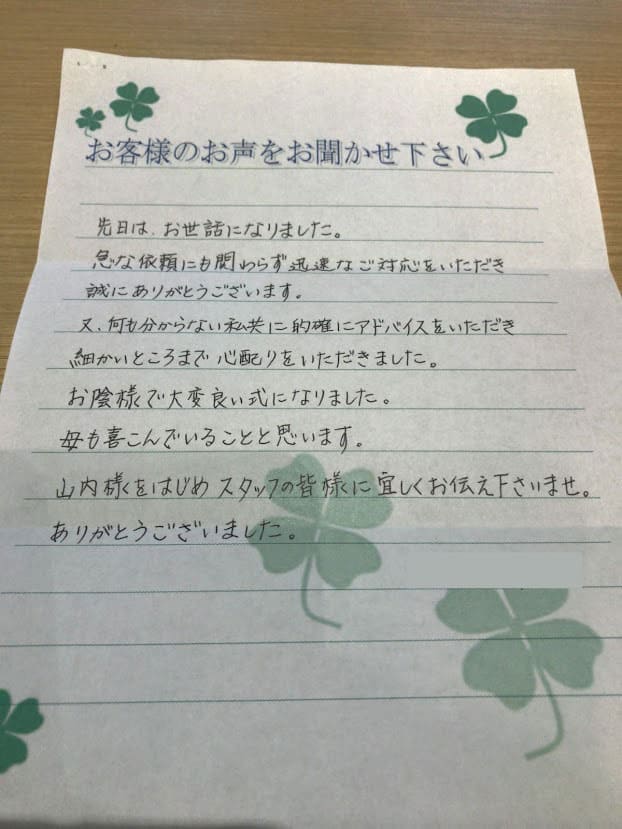 お客様のお声をお聞かせ下さい
先日は、お世話になりました。
急な依頼にも関わらず迅速なご対応をいただき
誠にありがとうございます。
又、何も分からない私共に的確にアドバイスをいただき
細かいところまで心配りをいただきました。
お陰様で大変良い式になりました。
母も喜こんでいることと思います。
山内様をはじめスタッフの皆様に宜しくお伝え下さいませ。
ありがとうございました。